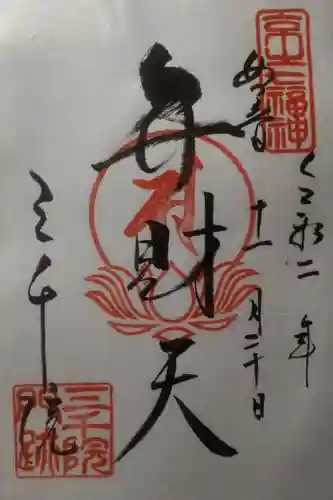 奉拝
令和二年
十一月二十日
弁財天
三千院
三千院
門跡